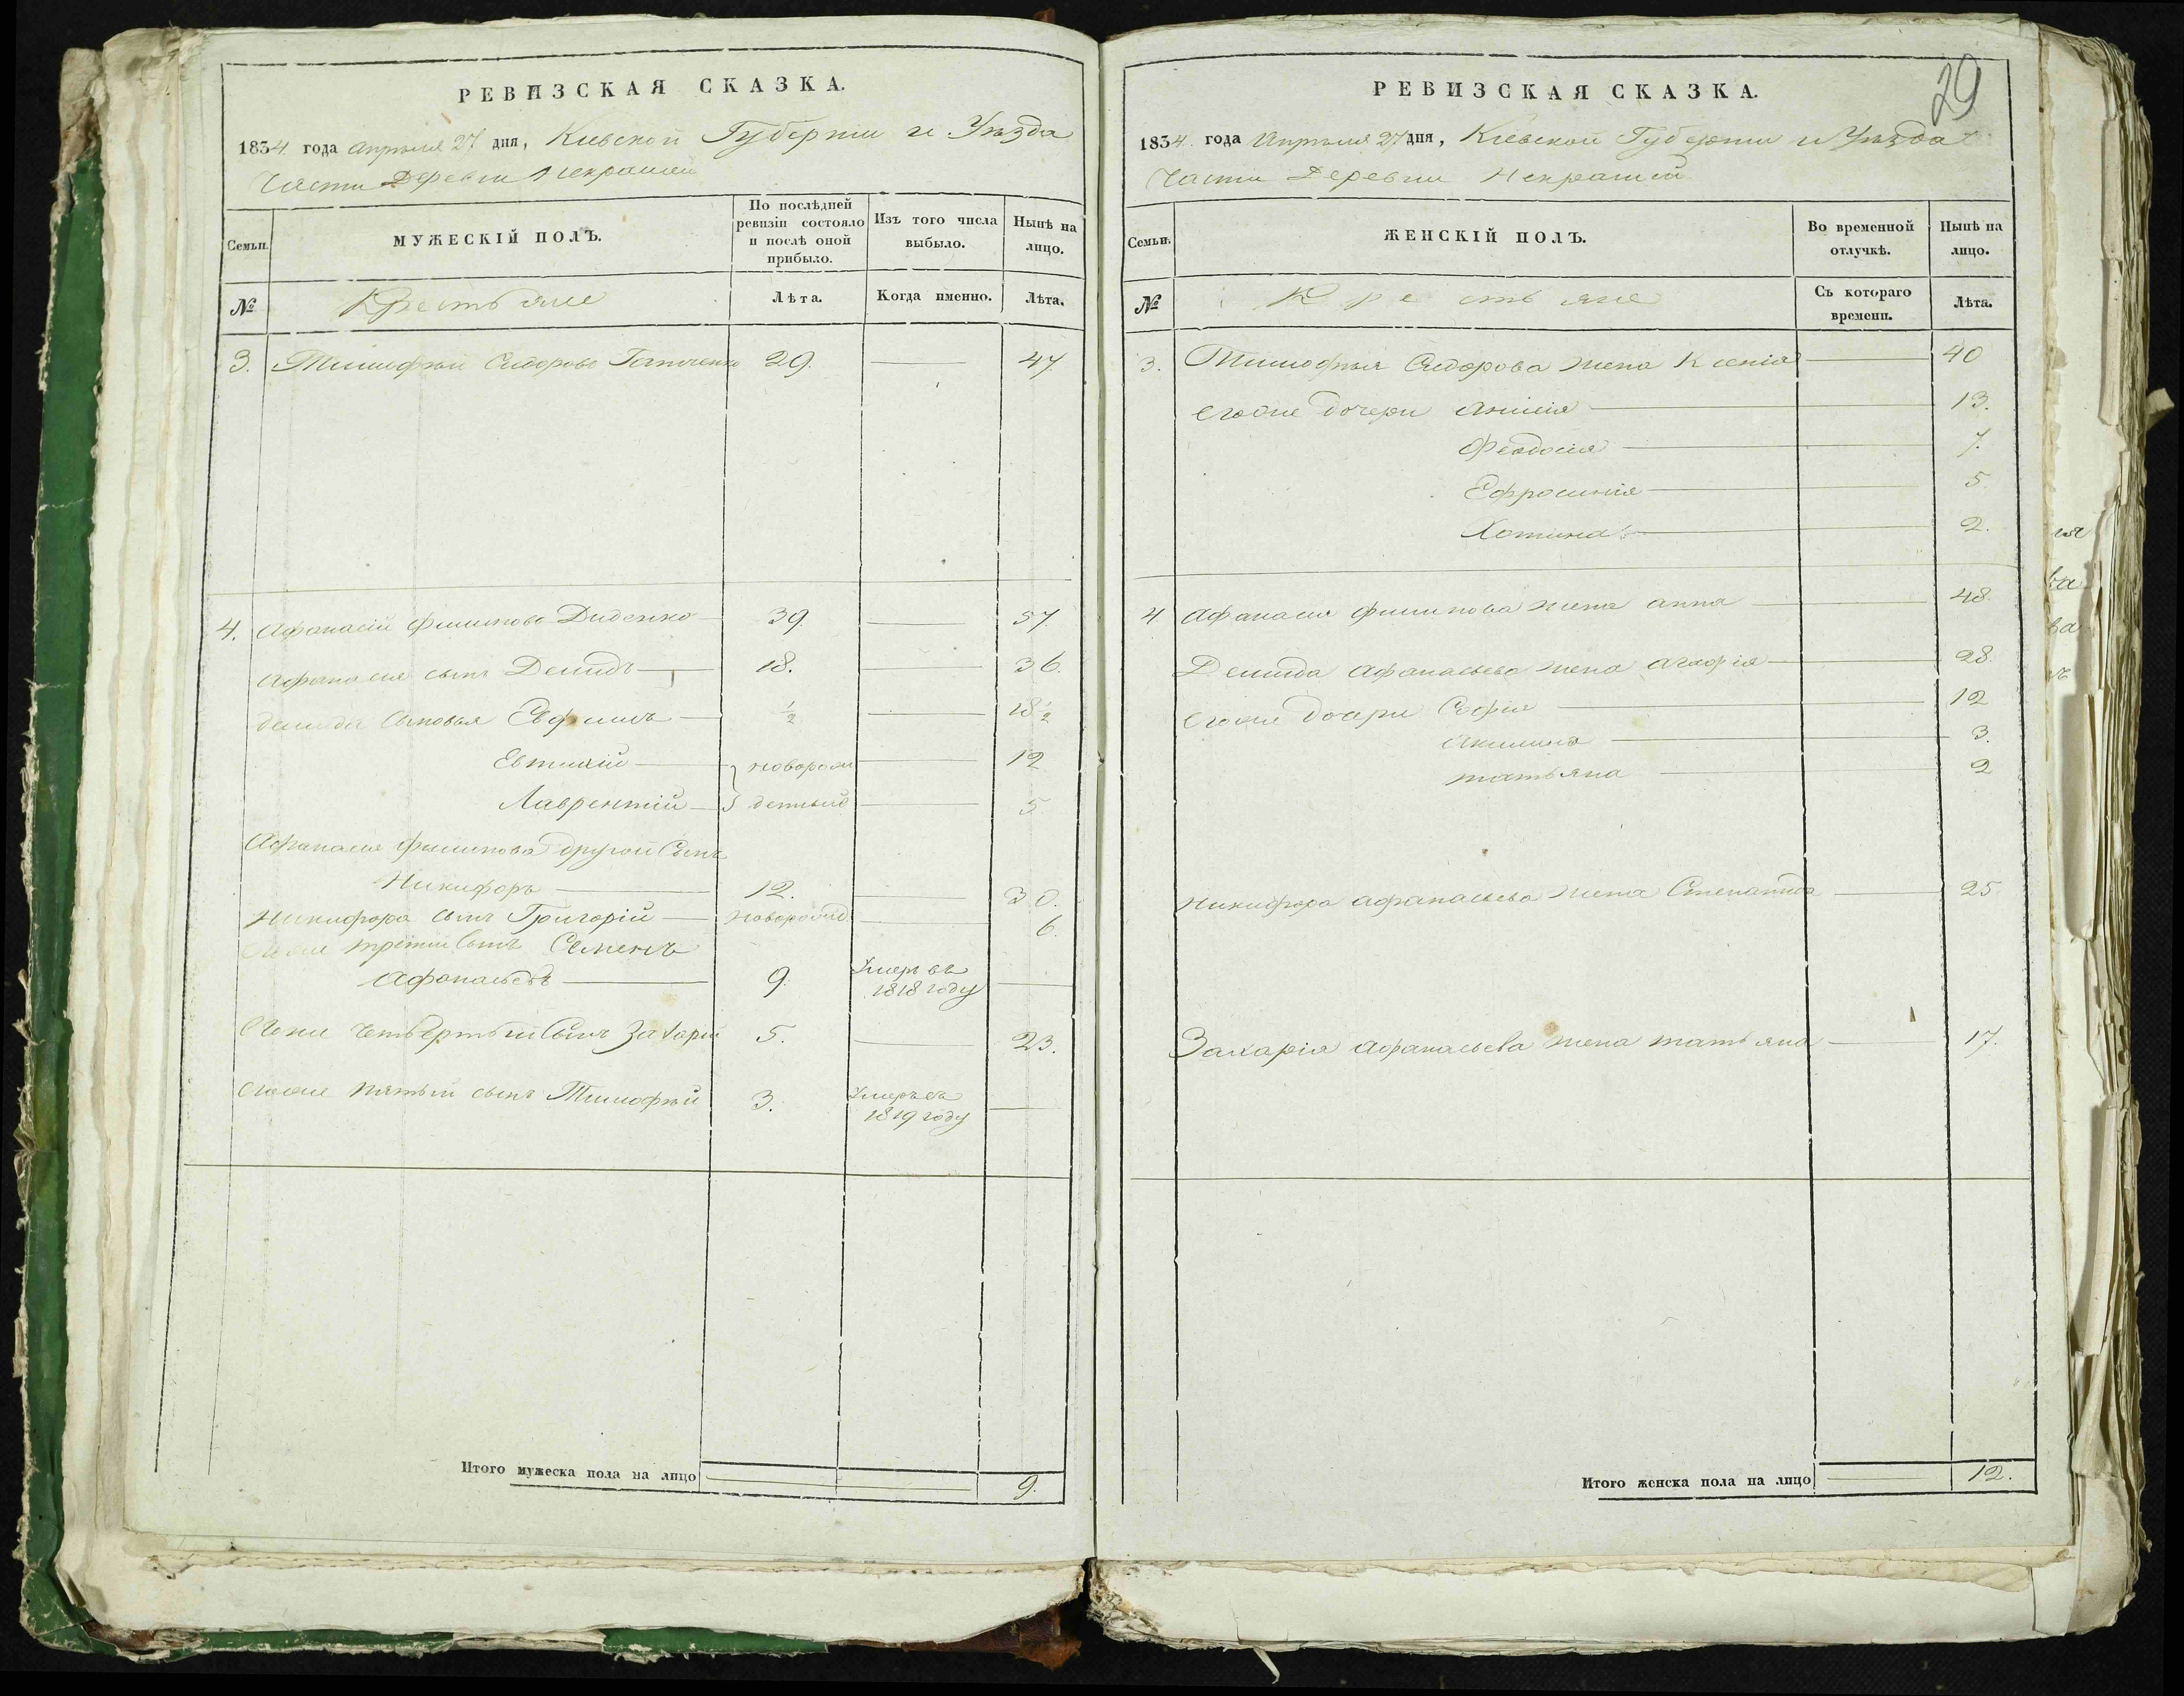 РЕВИЗСКАЯ СКАЗКА.
1834 года Апрѣля 27 дня, Кіевской Губерніи и Уѣзда
Части Деревни Некрашей
Семьи.
МУЖЕСКІЙ ПОЛЪ.
По послѣдней ревизіи состояло и послѣ оной прибыло.
Изъ того числа выбыло.
Нынѣ на лицо.
№
Крестьяне
Лѣта.
Когда именно.
Лѣта.
3. Тимофѣй Сидоровъ 29. 47
4. Афанасій Филиповъ Диденко 39. 57
Афанасия сынъ Демидъ 18. 36.
Демида сыновья Евфимъ ½ 18½
Евтихій новорож 12
Лаврентій денныи 5
Афанасия Филипова другой Сынъ
Никифоръ 12. 30.
Никифора сынъ Григорій новорожд 6.
Его же третій Сынъ Семенъ
Афанасьевъ 9. Умеръ въ 1818 году
Его же четвертый Сынъ Захарій 5. 23.
Его же пятый сынъ Тимофѣй 3. Умеръ въ 1819 году
Итого мужеска пола на лицо 9.
29
РЕВИЗСКАЯ СКАЗКА.
1834 года Апрѣля 27 дня, Кіевской Губерніи и Уѣзда
Части Деревни Некрашей
Семьи.
ЖЕНСКІЙ ПОЛЪ.
Во временной отлучкѣ.
Нынѣ на лицо.
№
Крестьяне
Съ котораго времени.
Лѣта.
3. Тимофѣя Сидорова жена Ксенія 40
его же дочери Анисія 13.
Феодосія 7.
Ефросинія 5
Хотина 2.
4 Афанасия Филипова жена Анна 48.
Демида Афанасьева жена Агафія 28.
Его же дочери Софія 12
Акилина 3.
Татьяна 2
Никифора Афанасьева жена Степанида 25
Захарія Афанасьева жена Татьяна 17.
Итого женска пола на лицо 12.